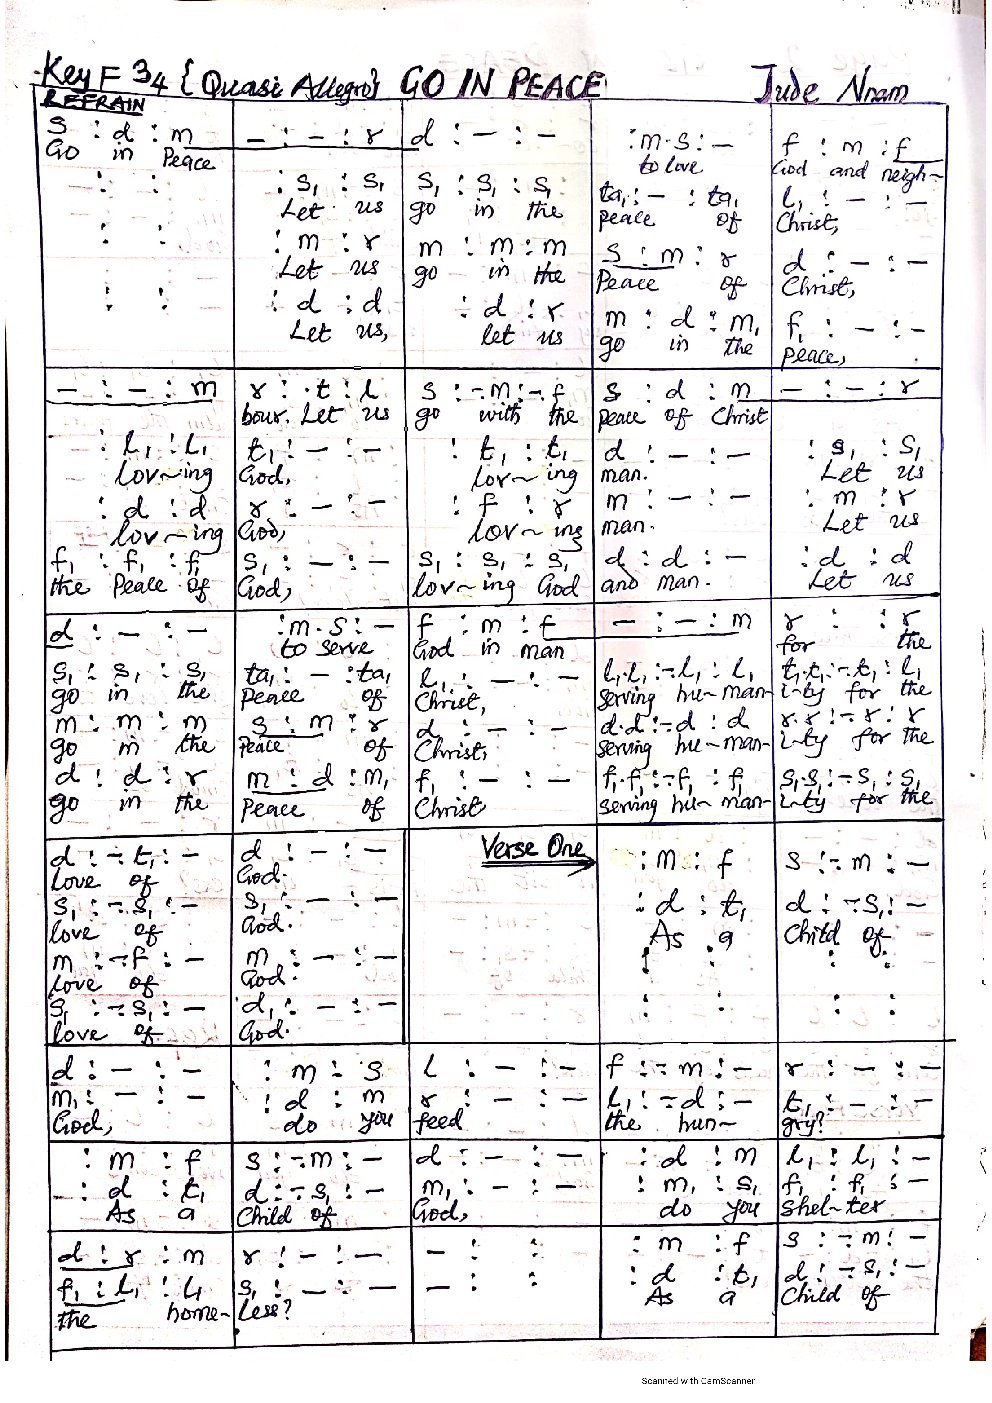 Key F 3 4 {Quasi Allegro} GO IN PEACE Jude Nnam
REFRAIN
s : d : m | – : – : r | d : – : – | : m . s : – | f : m : f
Go in Peace | to love | God and neigh~
: : | : s, : s, | s, : s, : s, | ta, : – : ta, | l, : – : –
Let us | go in the | peace of | Christ,
: : | : m : r | m : m : m | s : m : r | d : – : –
Let us | go in the | Peace of | Christ,
: : | : d : d | : d : r | m : d : m, | f, : – : –
Let us, | let us | go in the | peace,
– : – : m | r : . t : l | s : – . m : – . f | s : d : m | – : – : r
bour. Let us | go with the | peace of Christ
: l, : l, | t, : – : – | : t, : t, | d : – : – | : s, : s,
lov~ing | God, | lov~ing | man. | Let us
: d : d | r : – : – | : f : r | m : – : – | : m : r
lov~ing | God, | lov~ing | man. | Let us
f, : f, : f, | s, : – : – | s, : s, : s, | d : d : – | : d : d
the Peace of | God, | lov~ing God | and man. | Let us
d : – : – | : m . s : – | f : m : f | – : – : m | r : : r
to serve | God in man | for the
s, : s, : s, | ta, : – : ta, | l, : – : – | l, . l, : – . l, : l, | t, . t, : – . t, : l,
go in the | Peace of | Christ, | serving hu~man~ | i~ty for the
m : m : m | s : m : r | d : – : – | d . d : – . d : d | r . r : – . r : r
go in the | Peace of | Christ, | serving hu~man~ | i~ty for the
d : d : r | m : d : m, | f, : – : – | f, . f, : – . f, : f, | s, . s, : – . s, : s,
go in the | Peace of | Christ | serving hu~man~ | i~ty for the
d : – . t, : – | d : – : – | Verse One | : m : f | s : – . m : –
love of | God.
s, : – . s, : – | s, : – : – | : d : t, | d : – . s, : –
love of | God. | As a | Child of
m : – . f : – | m : – : – | : : | : :
love of | God.
s, : – . s, : – | d, : – : – | : : | : :
love of | God.
d : – : – | : m : s | l : – : – | f : – . m : – | r : – : –
m, : – : – | : d : m | r : – : – | l, : – . d : – | t, : – : –
God, | do you | feed | the hun~ | gry?
: m : f | s : – . m : – | d : – : – | : d : m | l, : l, : –
: d : t, | d : – . s, : – | m, : – : – | : m, : s, | f, : f, : –
As a | Child of | God, | do you | shel~ter
d : r : m | r : – : – | – : : | : m : f | s : – . m : –
f, : l, : l, | s, : – : – | – : : | : d : t, | d : – . s, : –
the home~ | less? | As a | Child of
Scanned with CamScanner